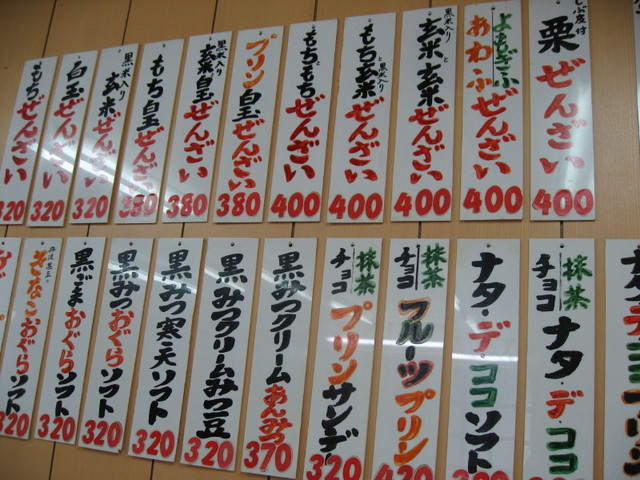 もちぜんざい 320
白玉ぜんざい 320
黒米入り 玄米ぜんざい 320
もち白玉ぜんざい 380
黒米入り 玄米白玉ぜんざい 380
プリン白玉ぜんざい 380
もちもちぜんざい 400
もちと黒米入り玄米ぜんざい 400
黒米入り 玄米と玄米ぜんざい 400
よもぎふ あわふ ぜんざい 400
しぶ皮付 栗ぜんざい 400
きなこおぐらソフト 320
黒ごまおぐらソフト 320
黒みつおぐらソフト 320
黒みつ寒天ソフト 320
黒みつクリームみつ豆 320
黒みつクリームあんみつ 370
抹茶 チョコ プリンサンデー 320
抹茶 チョコ フルーツプリン 420
ナタ・デ・ココソフト
抹茶 チョコ ナタ・デ・ココ